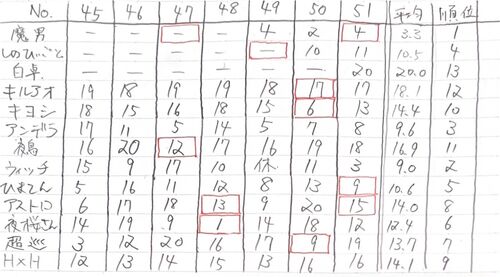 No. 45 46 47 48 49 50 51 平均 順位
魔男 — — — — 4 2 4 3.3 1
しのびごと — — — — — 10 11 10.5 4
白卓 — — — — — — 20 20.0 13
キルアオ 19 18 19 19 18 17 17 18.1 12
キヨシ 18 15 16 18 15 6 13 14.4 10
アンデラ 17 11 5 14 5 7 8 9.6 3
鵺鳥 16 20 12 17 16 19 18 16.9 11
ウィッチ 15 9 17 10 休 11 3 9.0 2
ひまてん 5 16 11 12 8 13 9 10.6 5
アストロ 6 17 18 13 9 20 15 14.0 8
夜桜さん 14 19 9 1 14 18 12 12.4 6
超巡 3 12 20 16 17 9 19 13.7 7
H×H 12 13 14 15 13 16 16 14.1 9